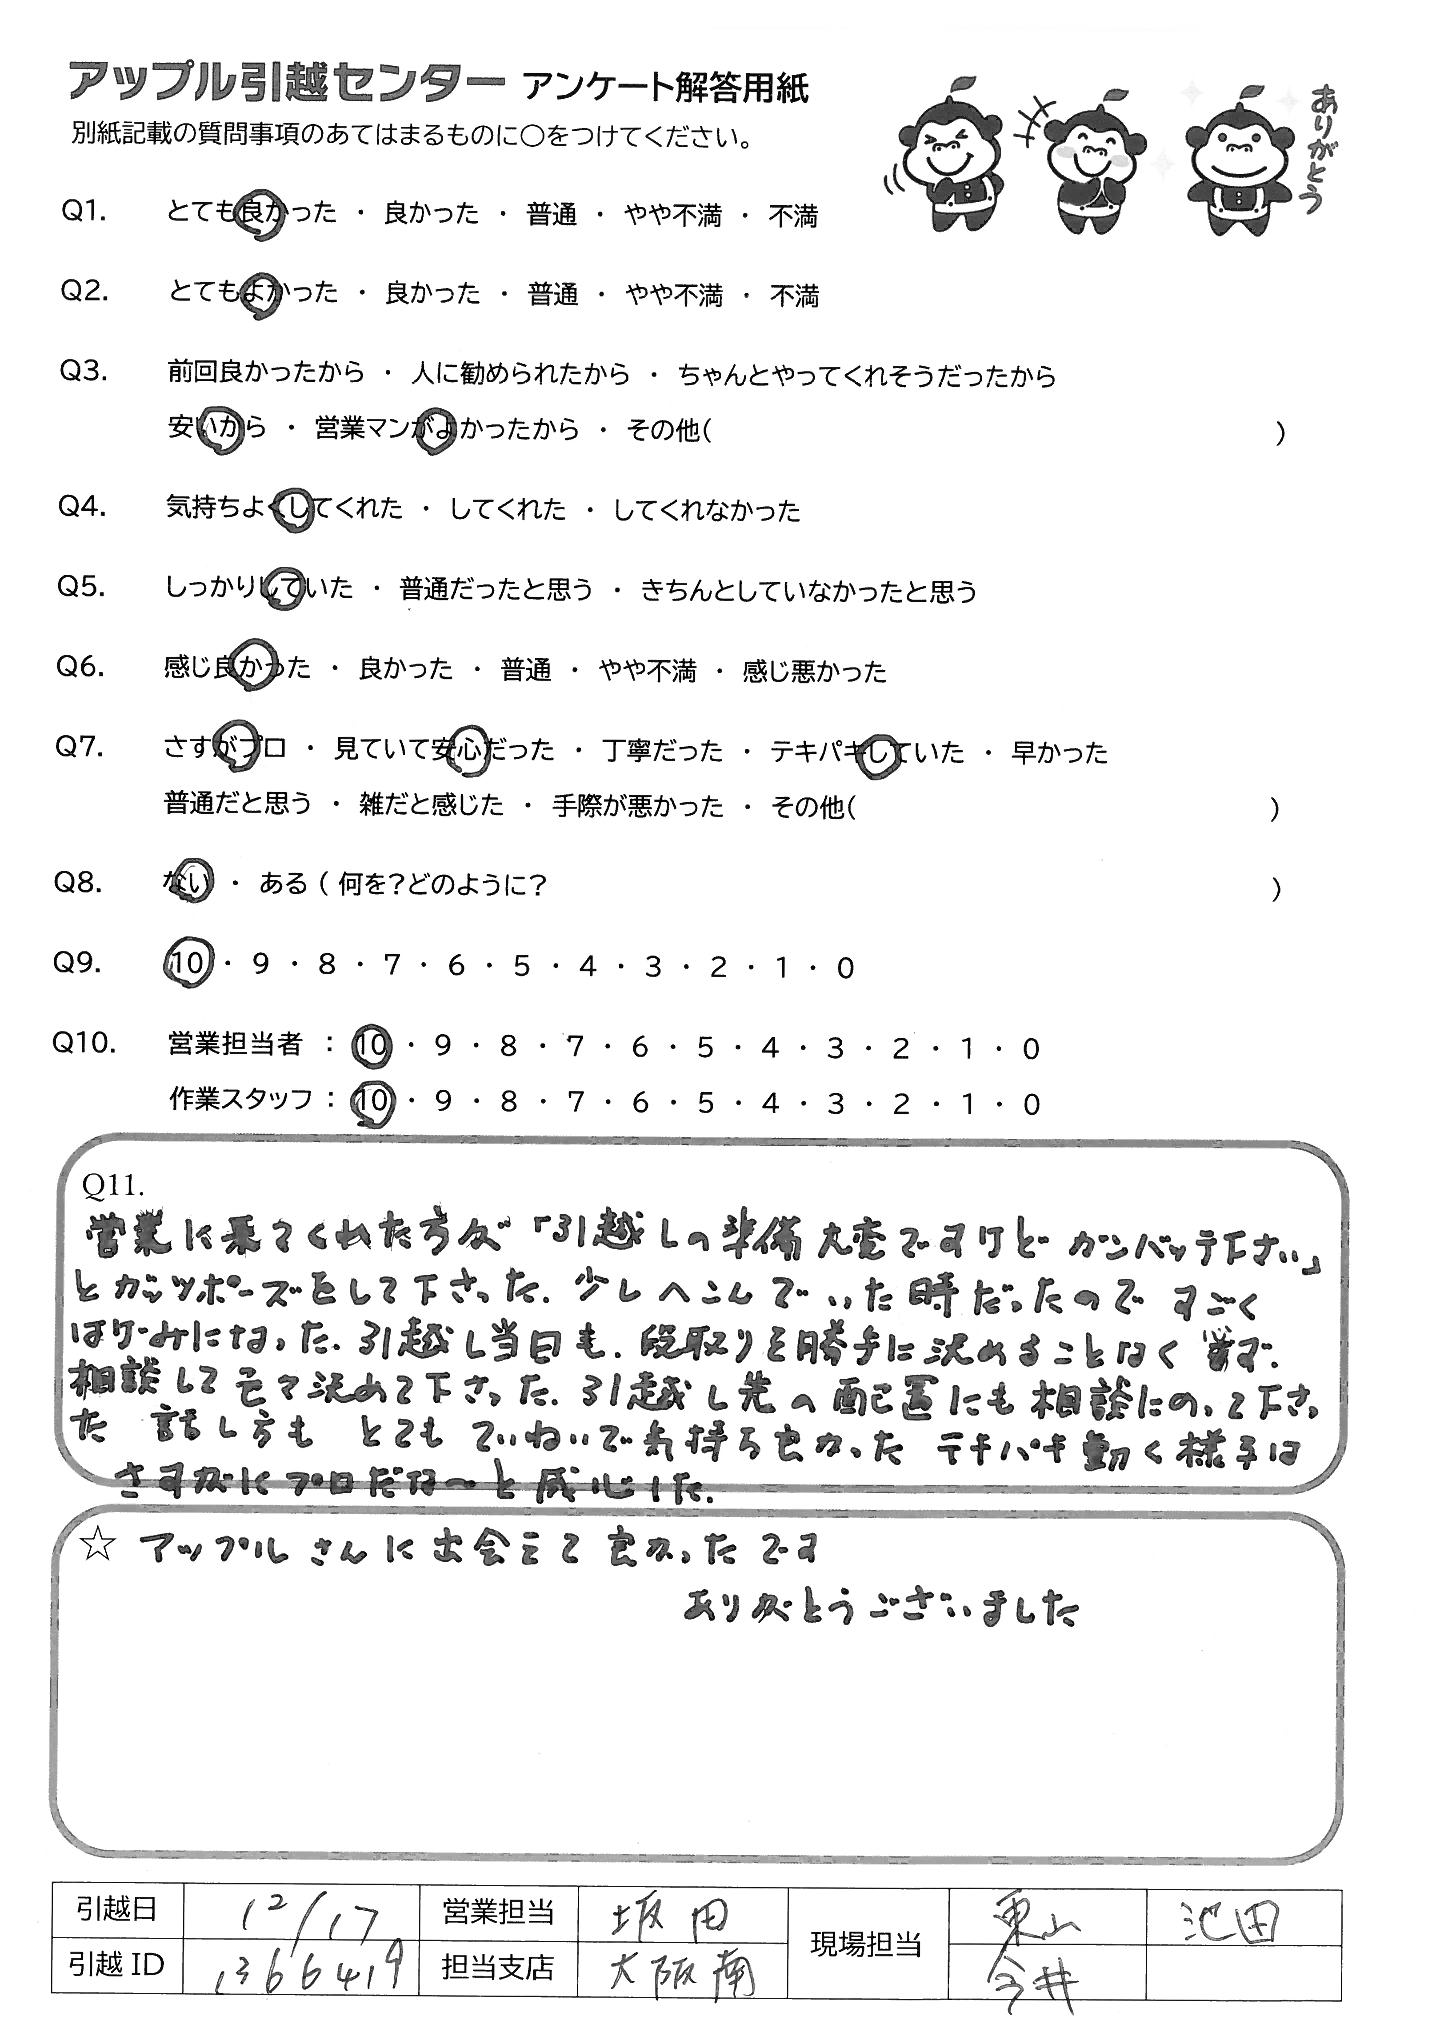 アップル引越センター アンケート解答用紙
別紙記載の質問事項のあてはまるものに○をつけてください。
ありがとう
Q1. とても良かった ・ 良かった ・ 普通 ・ やや不満 ・ 不満
Q2. とてもよかった ・ 良かった ・ 普通 ・ やや不満 ・ 不満
Q3. 前回良かったから ・ 人に勧められたから ・ ちゃんとやってくれそうだったから
安いから ・ 営業マンがよかったから ・ その他( )
Q4. 気持ちよくしてくれた ・ してくれた ・ してくれなかった
Q5. しっかりしていた ・ 普通だったと思う ・ きちんとしていなかったと思う
Q6. 感じ良かった ・ 良かった ・ 普通 ・ やや不満 ・ 感じ悪かった
Q7. さすがプロ ・ 見ていて安心だった ・ 丁寧だった ・ テキパキしていた ・ 早かった
普通だと思う ・ 雑だと感じた ・ 手際が悪かった ・ その他( )
Q8. ない ・ ある ( 何を?どのように? )
Q9. 10 ・ 9 ・ 8 ・ 7 ・ 6 ・ 5 ・ 4 ・ 3 ・ 2 ・ 1 ・ 0
Q10. 営業担当者 : 10 ・ 9 ・ 8 ・ 7 ・ 6 ・ 5 ・ 4 ・ 3 ・ 2 ・ 1 ・ 0
作業スタッフ : 10 ・ 9 ・ 8 ・ 7 ・ 6 ・ 5 ・ 4 ・ 3 ・ 2 ・ 1 ・ 0
Q11.
営業に来てくれた方が「引越しの準備大変ですけど ガンバッテ下さい」
とガッツポーズをして下さった. 少しへこんでいた時だったので すごく
はげみになった. 引越し当日も. 段取りを勝手に決めることなく 必ず.
相談して 決めて下さった. 引越し先の配置にも相談にのって下さっ
た 話し方も とても ていねいで気持ち良かった テキパキ動く様子は
さすがにプロだな〜と感心した.
☆ アップルさんに出会えて良かったです
ありがとうございました
引越日 12/17 営業担当 坂田 現場担当 東山 池田
引越 ID 1366419 担当支店 大阪南 今井